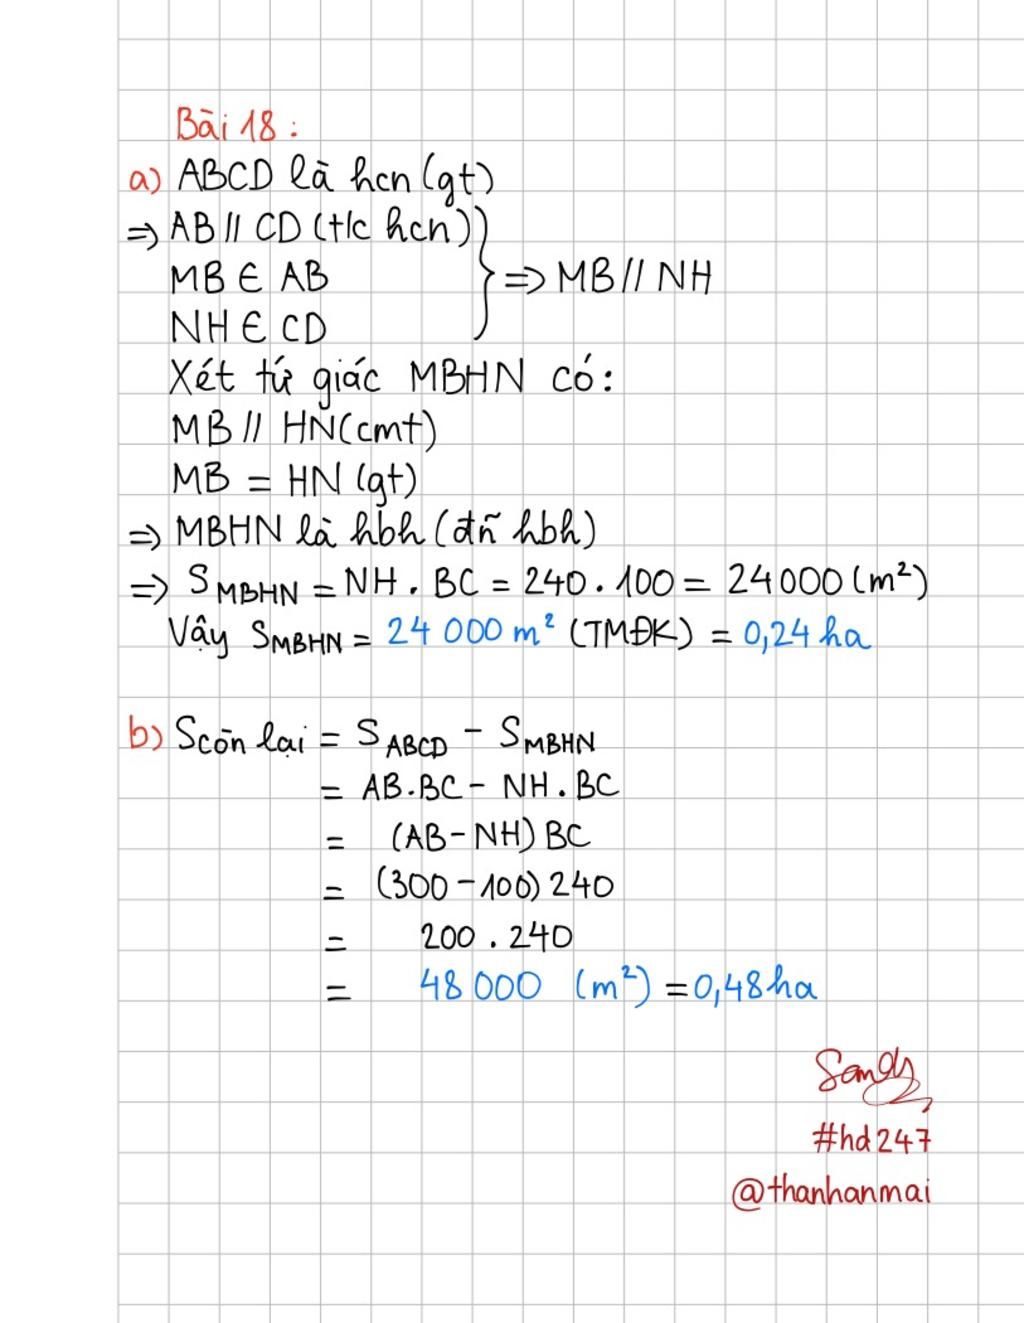 Bài 18 :
a) ABCD là hcn (gt)
=> AB // CD (t/c hcn)
MB ∈ AB
NH ∈ CD
} => MB // NH
Xét tứ giác MBHN có:
MB // HN (cmt)
MB = HN (gt)
=> MBHN là hbh (đñ hbh)
=> S MBHN = NH . BC = 240 . 100 = 24000 (m²)
Vậy S MBHN = 24 000 m² (TMĐK) = 0,24 ha
b) S còn lại = S ABCD - S MBHN
= AB.BC - NH.BC
= (AB - NH) BC
= (300 - 100) 240
= 200 . 240
= 48 000 (m²) = 0,48 ha
Sandy
#hd247
@thanhanmai